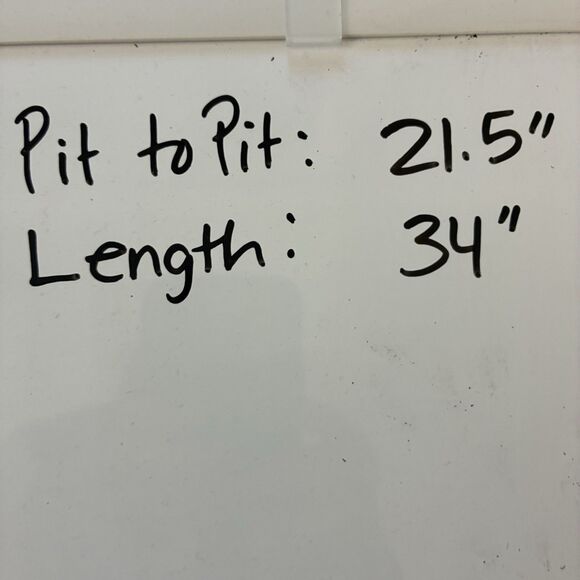 Pit to Pit: 21.5"
Length: 34"